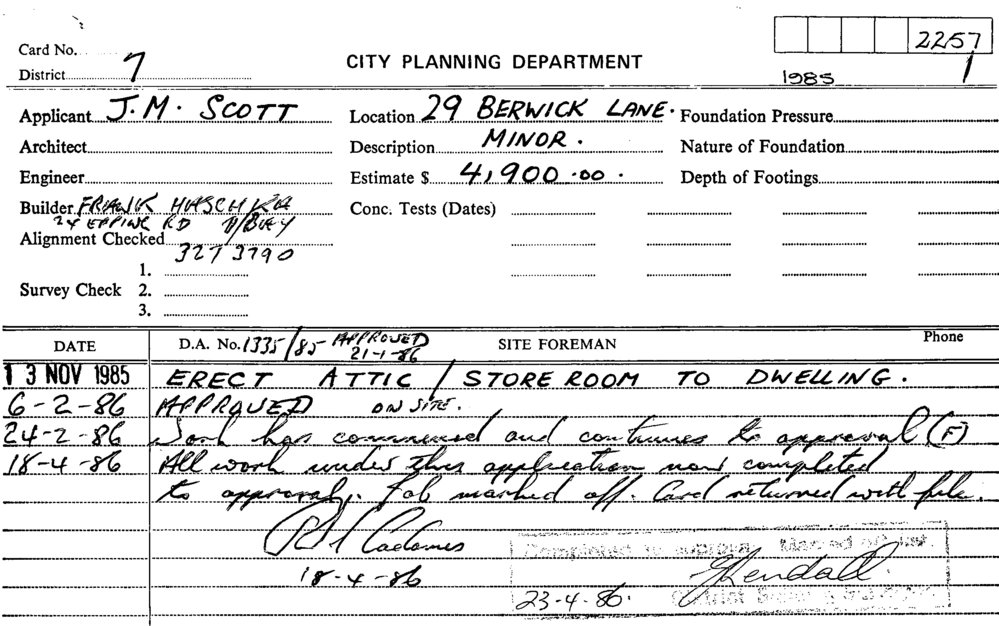 Card No.
2257
District 7
CITY PLANNING DEPARTMENT
1985 1
Applicant J.M. SCOTT
Location 29 BERWICK LANE.
Foundation Pressure
Architect
Description MINOR.
Nature of Foundation
Engineer
Estimate $ 4,900.00.
Depth of Footings
Builder FRANK
Conc. Tests (Dates)
24 EPPING RD
Alignment Checked
327 3790
1.
Survey Check 2.
3.
DATE
D.A. No. 1335/85 APPROVED 21-1-86
SITE FOREMAN
Phone
13 NOV 1985 ERECT ATTIC / STORE ROOM TO DWELLING.
6-2-86 APPROVED ON SITE.
24-2-86 Work has commenced and continues to approval (F)
18-4-86 All work under this application now completed
to approval. Job marked off. Card returned with file.
18-4-86
Completed to approval. Marked off
Kendall
23-4-86.
District